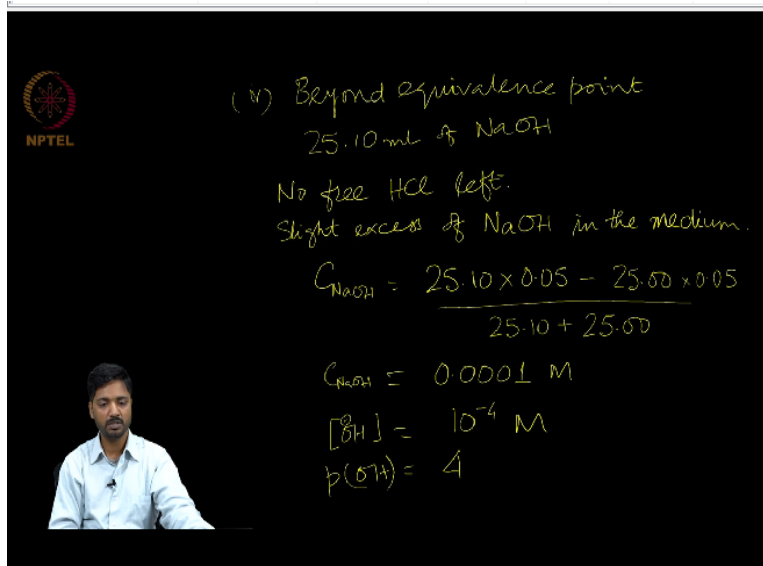 NPTEL
(V) Beyond equivalence point
25.10 ml of NaOH
No free HCl left.
Slight excess of NaOH in the medium.
C_NaOH = 25.10 × 0.05 – 25.00 × 0.05
25.10 + 25.00
C_NaOH = 0.0001 M
[OH] = 10⁻⁴ M
p(OH) = 4